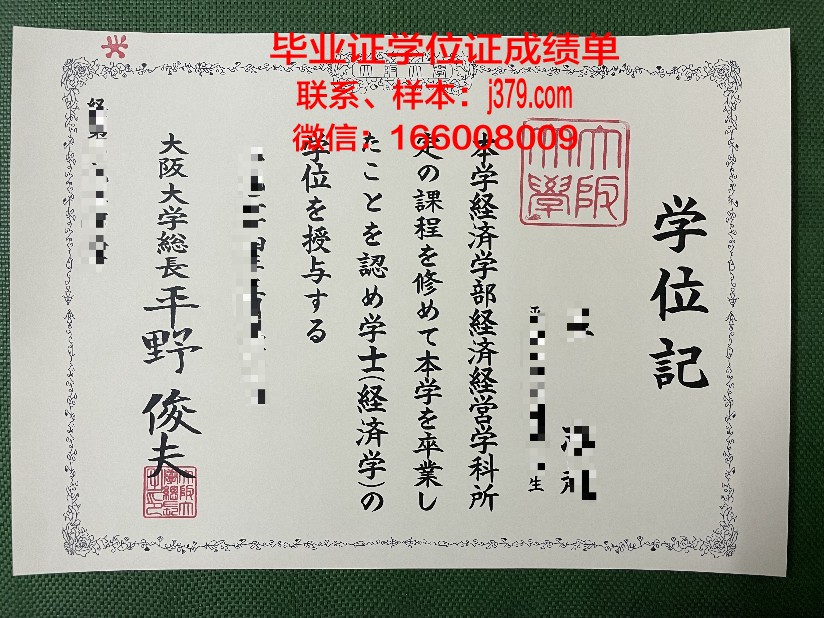 毕业证学位证成绩单
联系、样本：j379.com
微信：166008009
学位記
大阪
大學
生
本学経済学部経済経営学科所
定の課程を修めて本学を卒業し
たことを認め学士(経済学)の
学位を授与する
大阪大学総長 平野俊夫